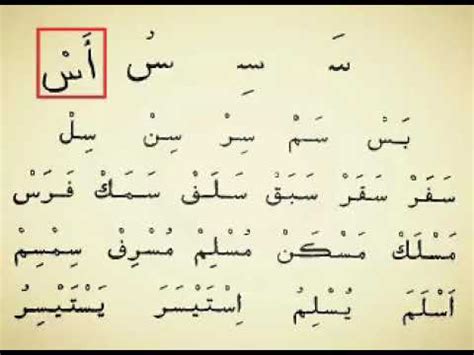 سَ سِ سُ أَسْ
بَسْ سَمْ سِرْ سِنْ سِلْ
سَفَرْ سَقَرْ سَبَقْ سَلَفْ سَمَكْ فَرَسْ
مَسْلَكْ مَسْكَنْ مُسْلِمْ مُسْرِفْ سِمْسِمْ
اَسْلَمَ يُسْلِمُ اِسْتَيْسَرَ يَسْتَيْسِرُ